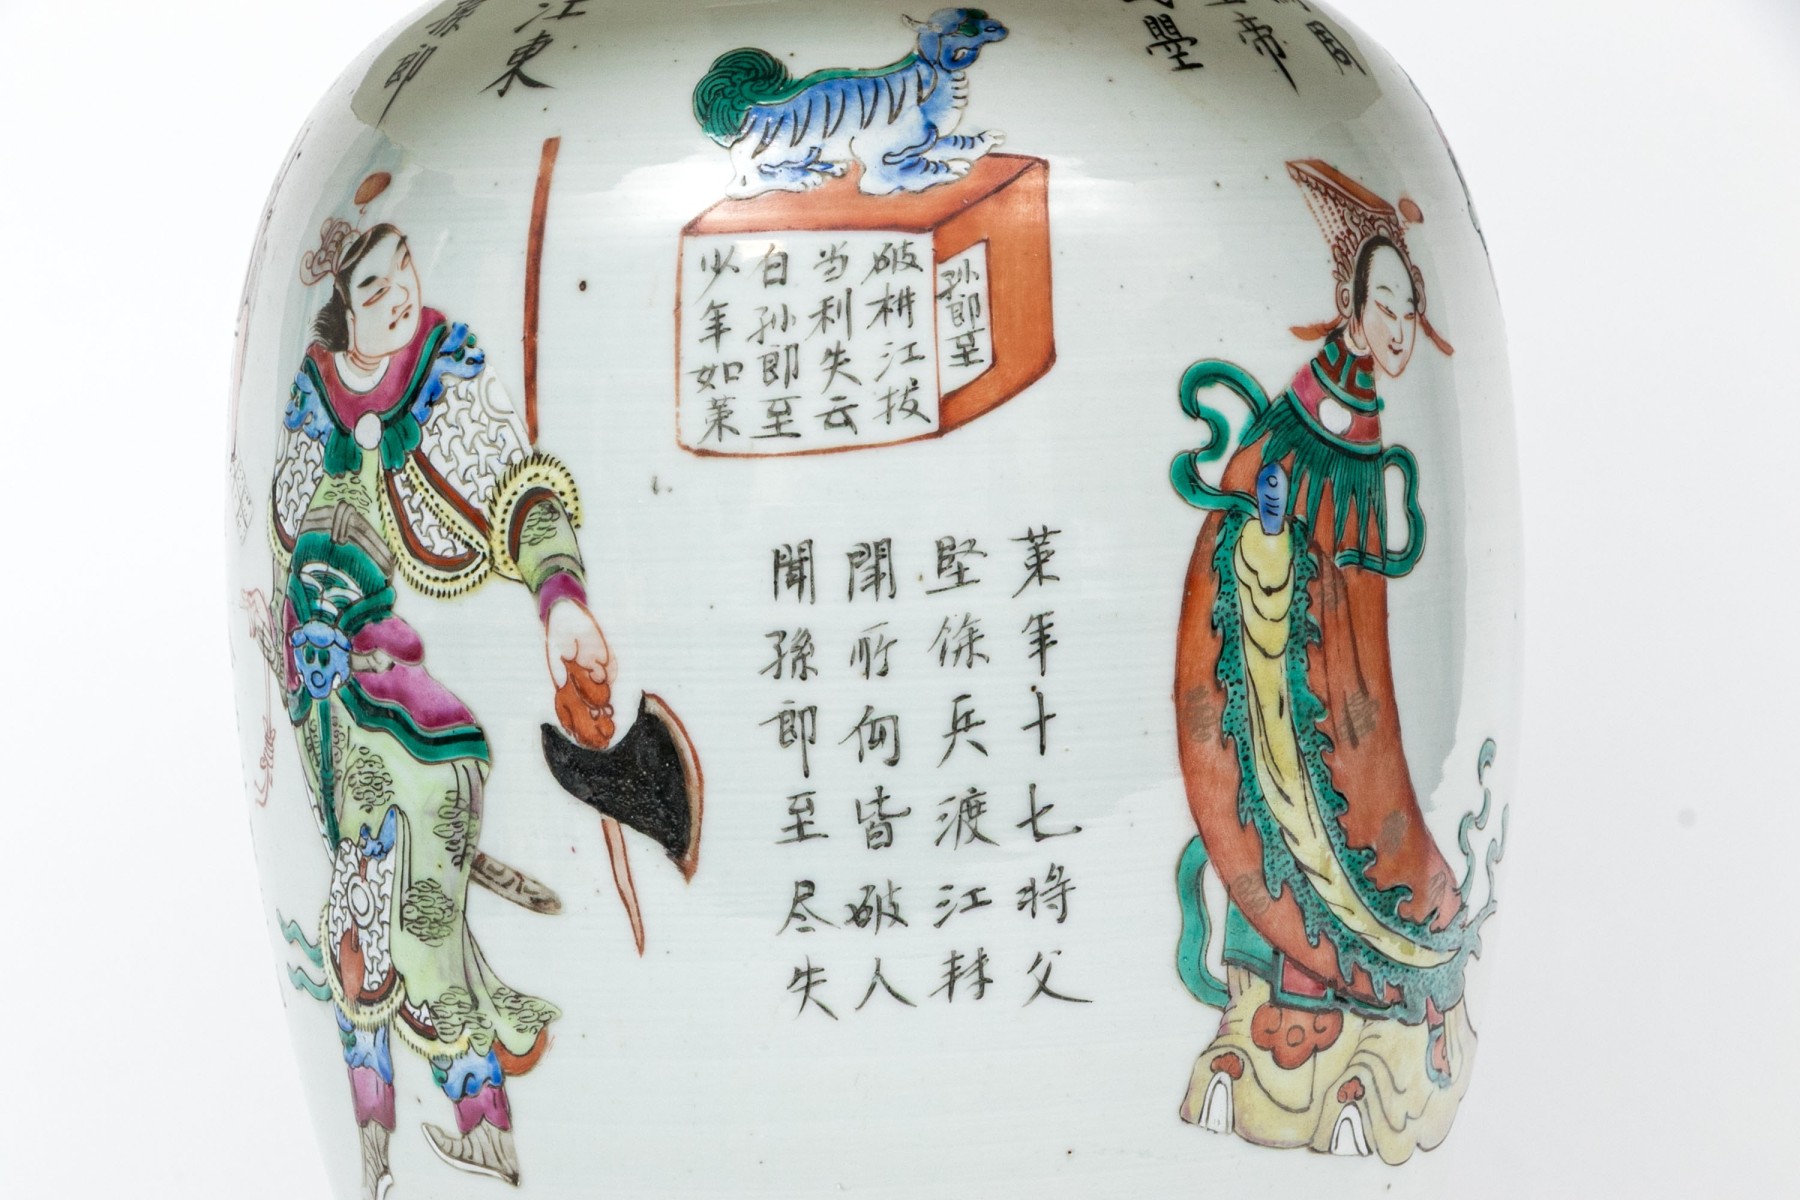 周
帝
曌
江東
孫郎
孙郎至
破枡江拔
当利失云
白孙郎至
少年如茦
茦年十七将父
堅馀兵渡江
所向皆破人
聞孫郎至尽失